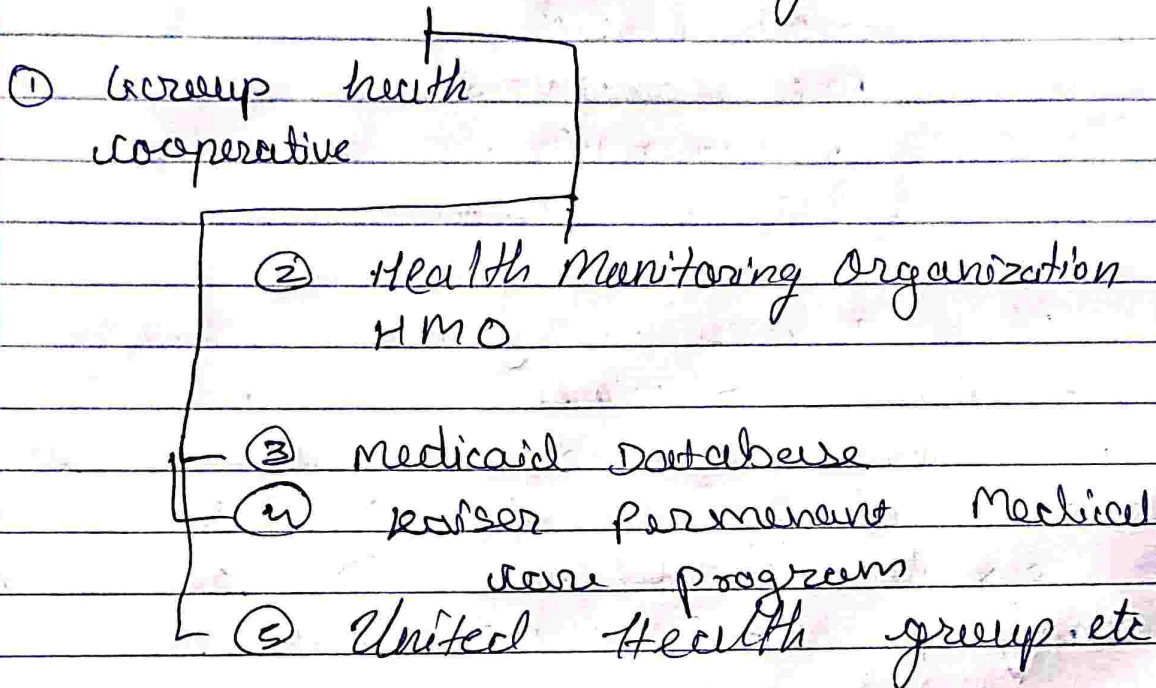 ① Group heath
cooperative
② Health Monitoring Organization
HMO
③ Medicaid Database
④ kaiser Permenant Medical
care program
⑤ United Health group. etc